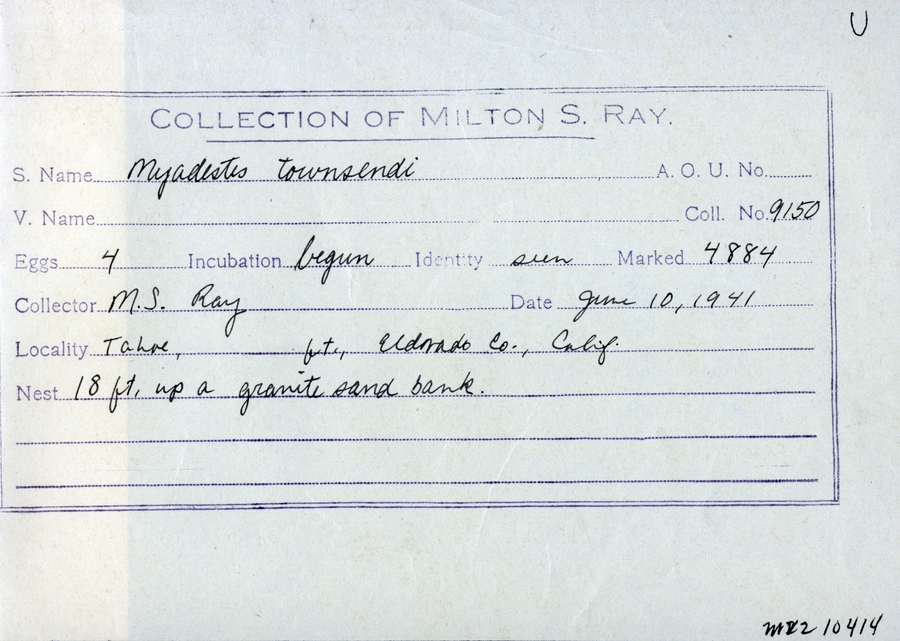 U
COLLECTION OF MILTON S. RAY.
S. Name Myadestes townsendi A. O. U. No.
V. Name Coll. No. 9150
Eggs 4 Incubation begun Identity seen Marked 4884
Collector M.S. Ray Date June 10, 1941
Locality Tahoe, ft., Eldorado Co., Calif.
Nest 18 ft. up a granite sand bank.
10414